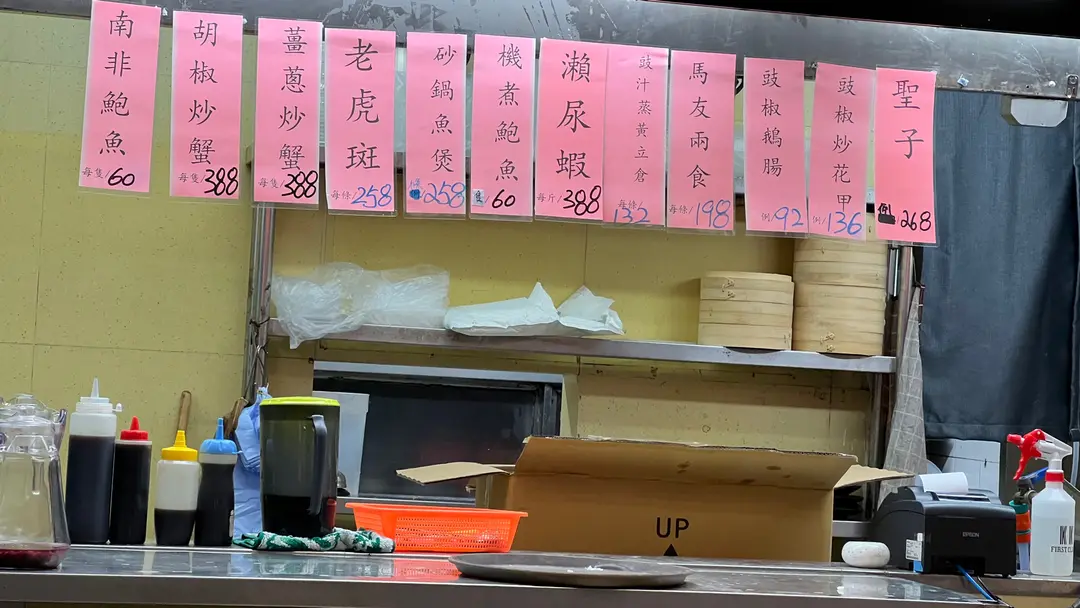 南非鮑魚
每隻/60
胡椒炒蟹
每隻/388
薑蔥炒蟹
每隻/388
老虎斑
每條/258
砂鍋魚煲
258
機煮鮑魚
隻/60
瀨尿蝦
每斤/388
豉汁蒸黃立倉
每條/132
馬友兩食
每條/198
豉椒鵝腸
例/92
豉椒炒花甲
例/136
聖子
例/268
UP
EPSON